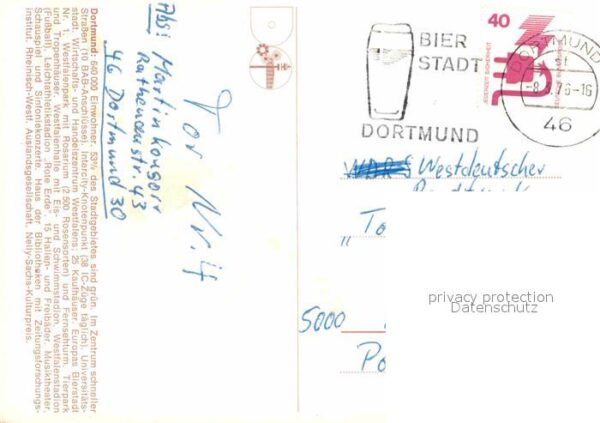 Dortmund: 640 000 Einwohner. 53% des Stadtgebietes sind grün. Im Zentrum schneller
Straßen (10 BAB-Anschlüsse) Intercity-Knotenpunkt (38 IC-Züge täglich). Universitäts-
stadt. Wirtschafts- und Handelszentrum Westfalens; 25 Kaufhäuser. Europas Bierstadt
Nr. 1. Westfalenpark mit Rosarium (2 500 Rosensorten) und Fernsehturm. Tierpark
und Tropenhäuser. Westfalenhalle mit Eis- und Schwimmstadion. Westfalenstadion
(Fußball). Leichtathletikstadion „Rote Erde“. 15 Hallen- und Freibäder. Musiktheater,
Schauspiel und Sinfoniekonzerte. Haus der Bibliotheken mit Zeitungsforschungs-
institut. Rheinisch-Westf. Auslandsgesellschaft. Nelly-Sachs-Kulturpreis.
Abs: Martin
Rathenaustr. 43
46 Dortmund 30
Tor Nr. 4
BIER
STADT
DORTMUND
40
DORTMUND
-8.
76-16
46
Westdeutscher
"To
5000
privacy protection
Datenschutz